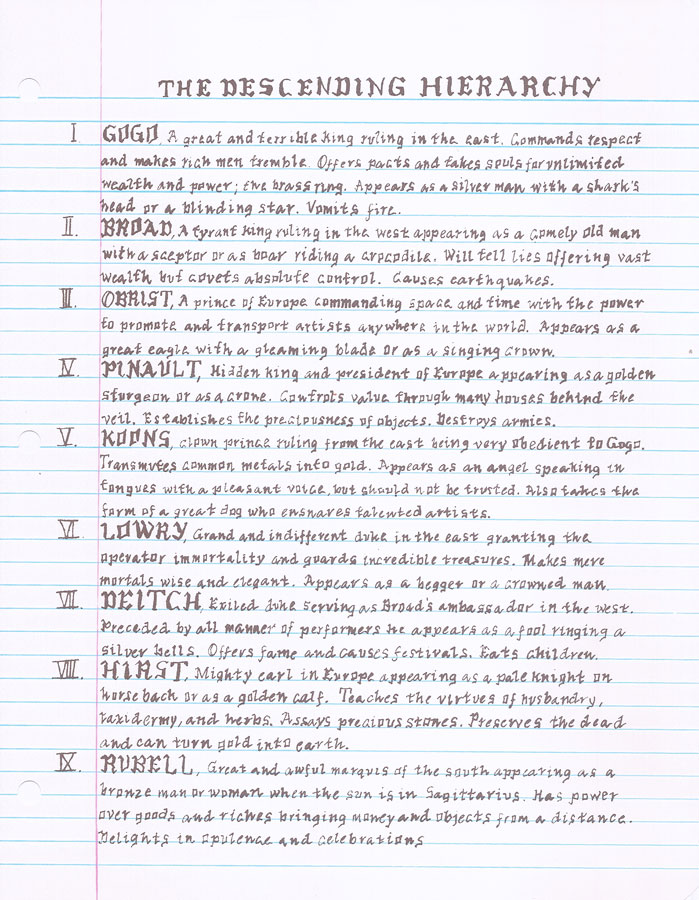 THE DESCENDING HIERARCHY
I. GOGO, A great and terrible king ruling in the east. Commands respect
and makes rich men tremble. Offers pacts and takes souls for unlimited
wealth and power; the brass ring. Appears as a silver man with a shark's
head or a blinding star. Vomits fire.
II. BROAD, A tyrant king ruling in the west appearing as a comely old man
with a sceptor or as boar riding a crocodile. Will tell lies offering vast
wealth but covets absolute control. Causes earthquakes.
III. OBRIST, A prince of Europe commanding space and time with the power
to promote and transport artists anywhere in the world. Appears as a
great eagle with a gleaming blade or as a singing crown.
IV. PINAULT, Hidden king and president of Europe appearing as a golden
sturgeon or as a crone. Controls value through many houses behind the
veil. Establishes the preciousness of objects. Destroys armies.
V. KOONS, clown prince ruling from the east being very obedient to Gogo.
Transmutes common metals into gold. Appears as an angel speaking in
tongues with a pleasant voice, but should not be trusted. Also takes the
form of a great dog who ensnares talented artists.
VI. LOWRY, Grand and indifferent duke in the east granting the
operator immortality and guards incredible treasures. Makes mere
mortals wise and elegant. Appears as a begger or a crowned man.
VII. DEITCH, Exiled duke serving as Broad's ambassador in the west.
Preceded by all manner of performers he appears as a fool ringing a
silver bells. Offers fame and causes festivals. Eats children.
VIII. HIRST, Mighty earl in Europe appearing as a pale knight on
horse back or as a golden calf. Teaches the virtues of husbandry,
taxidermy, and herbs. Assays precious stones. Preserves the dead
and can turn gold into earth.
IX. RUBELL, Great and awful marquis of the south appearing as a
bronze man or woman when the sun is in Sagittarius. Has power
over goods and riches bringing money and objects from a distance.
Delights in opulence and celebrations